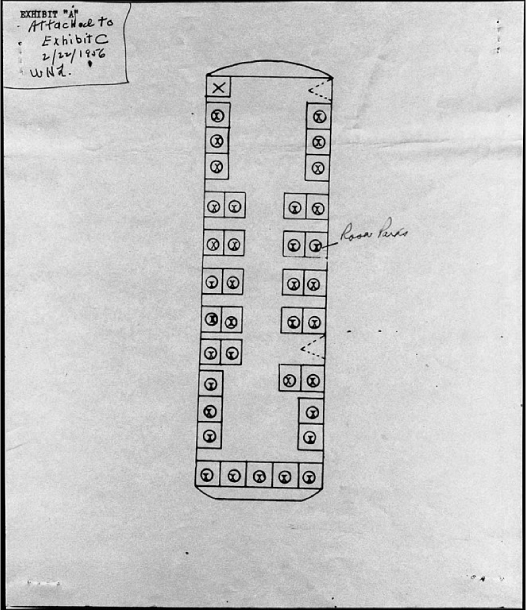 EXHIBIT "A"
Attached to
Exhibit C
2/22/1956
WNL.
X
Rosa Parks